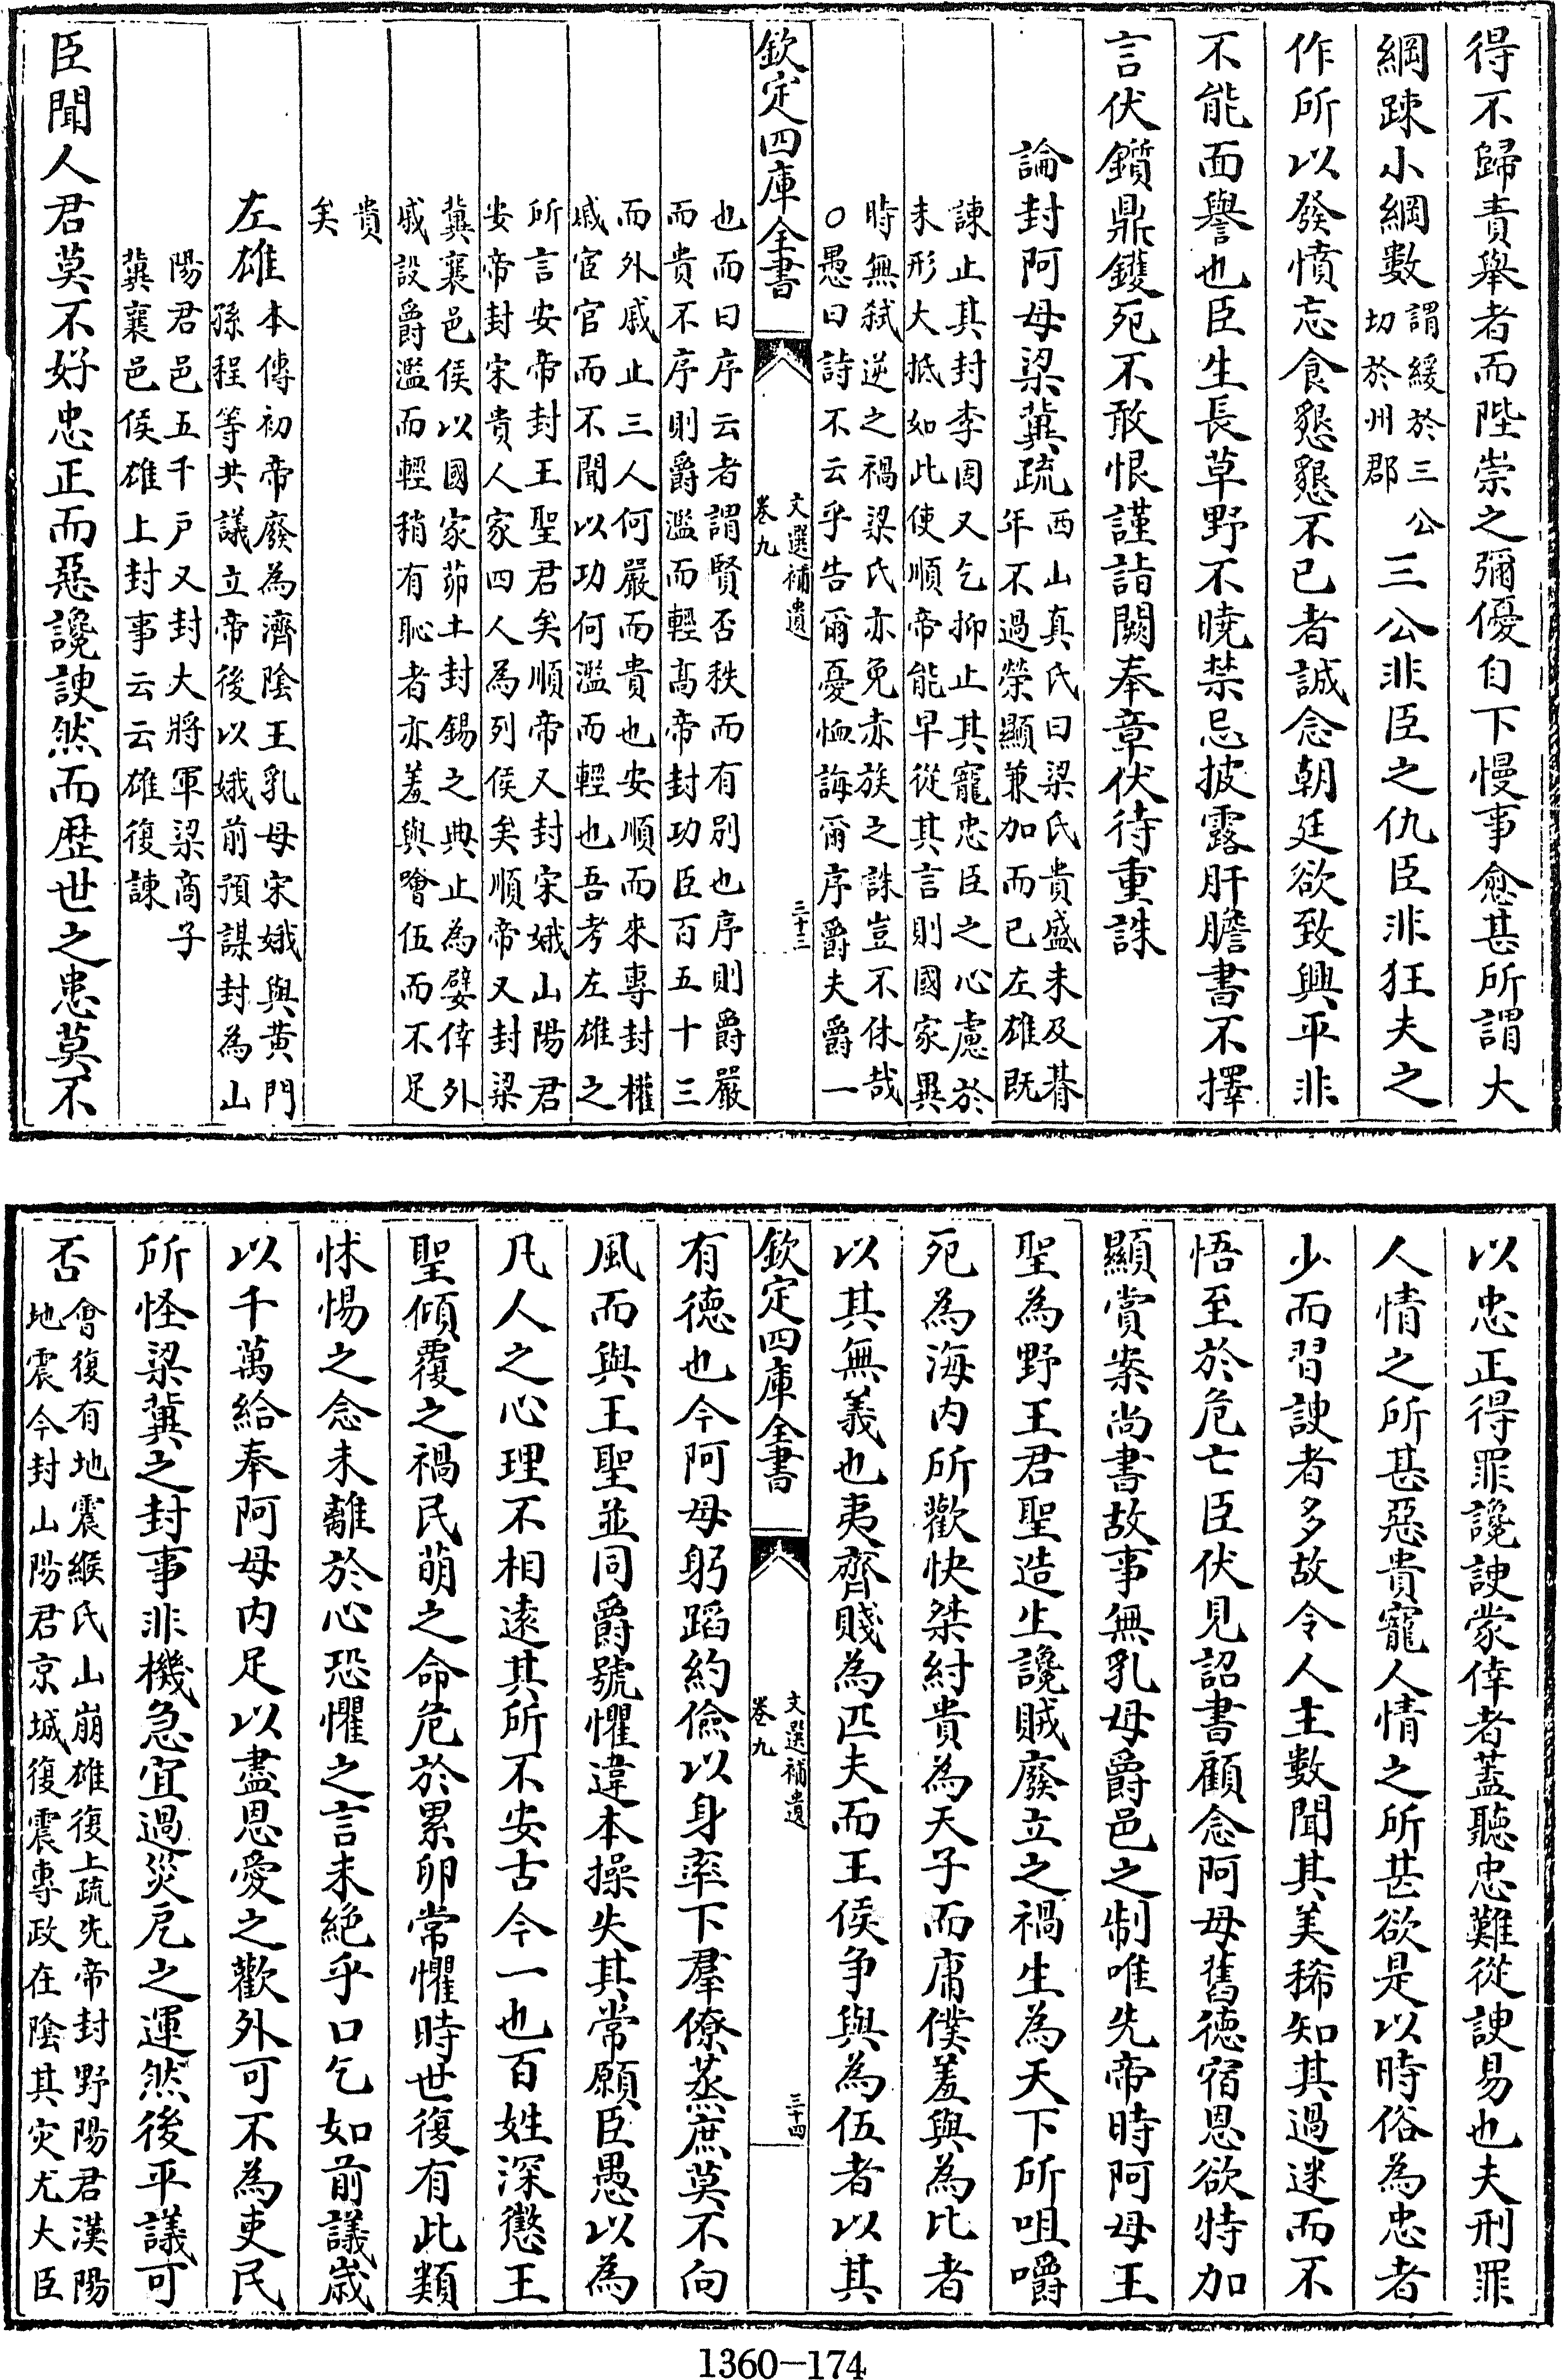 得不歸責舉者而陛崇之彌優自下慢事愈甚所謂大
綱踈小綱數謂緩於三公切於州郡三公非臣之仇臣非狂夫之
作所以發憤忘食懇懇不已者誠念朝廷欲致興平非
不能面譽也臣生長草野不曉禁忌披露肝膽書不擇
言伏鑕鼎鑊死不敢恨謹詣闕奉章伏待重誅
論封阿母梁冀疏西山真氏曰梁氏貴盛未及朞年不過榮顯兼加而已左雄既
諫止其封李固又乞抑止其寵忠臣之心慮於未形大抵如此使順帝能早從其言則國家異
時無弑逆之禍梁氏亦免赤族之誅豈不休哉○愚曰詩不云乎告爾憂恤誨爾序爵夫爵一
欽定四庫全書
文選補遺
卷九
三十三
也而曰序云者謂賢否秩而有別也序則爵嚴而貴不序則爵濫而輕髙帝封功臣百五十三
而外戚止三人何嚴而貴也安順而來專封權戚宦官而不聞以功何濫而輕也吾考左雄之
所言安帝封王聖君矣順帝又封宋娥山陽君安帝封宋貴人家四人為列侯矣順帝又封梁
冀襄邑侯以國家茆土封錫之典止為嬖倖外戚設爵濫而輕稍有恥者亦羞與噲伍而不足
貴矣
左雄本傳初帝廢為濟隂王乳母宋娥與黄門孫程等共議立帝後以娥前預謀封為山
陽君邑五千戶又封大將軍梁商子冀襄邑侯雄上封事云云雄復諫
臣聞人君莫不好忠正而惡讒諛然而歷世之患莫不
以忠正得罪讒諛蒙倖者蓋聽忠難從諛易也夫刑罪
人情之所甚惡貴寵人情之所甚欲是以時俗為忠者
少而習諛者多故令人主數聞其美稀知其過迷而不
悟至於危亡臣伏見詔書顧念阿母舊德宿恩欲特加
顯賞案尚書故事無乳母爵邑之制唯先帝時阿母王
聖為野王君聖造生讒賊廢立之禍生為天下所咀嚼
死為海内所歡快桀紂貴為天子而庸僕羞與為比者
以其無義也夷齊賤為匹夫而王侯争與為伍者以其
欽定四庫全書
文選補遺
卷九
三十四
有德也今阿母躬蹈約儉以身率下羣僚蒸庶莫不向
風而與王聖並同爵號懼違本操失其常願臣愚以為
凡人之心理不相遠其所不安古今一也百姓深懲王
聖傾覆之禍民萌之命危於累卵常懼時世復有此類
怵惕之念未離於心恐懼之言未絶乎口乞如前議嵗
以千萬給奉阿母内足以盡恩愛之歡外可不為吏民
所怪梁冀之封事非機急宜過災戹之運然後平議可
否會復有地震緱氏山崩雄復上疏先帝封野陽君漢陽地震今封山陽君京城復震專政在隂其灾尤大臣
1360-174